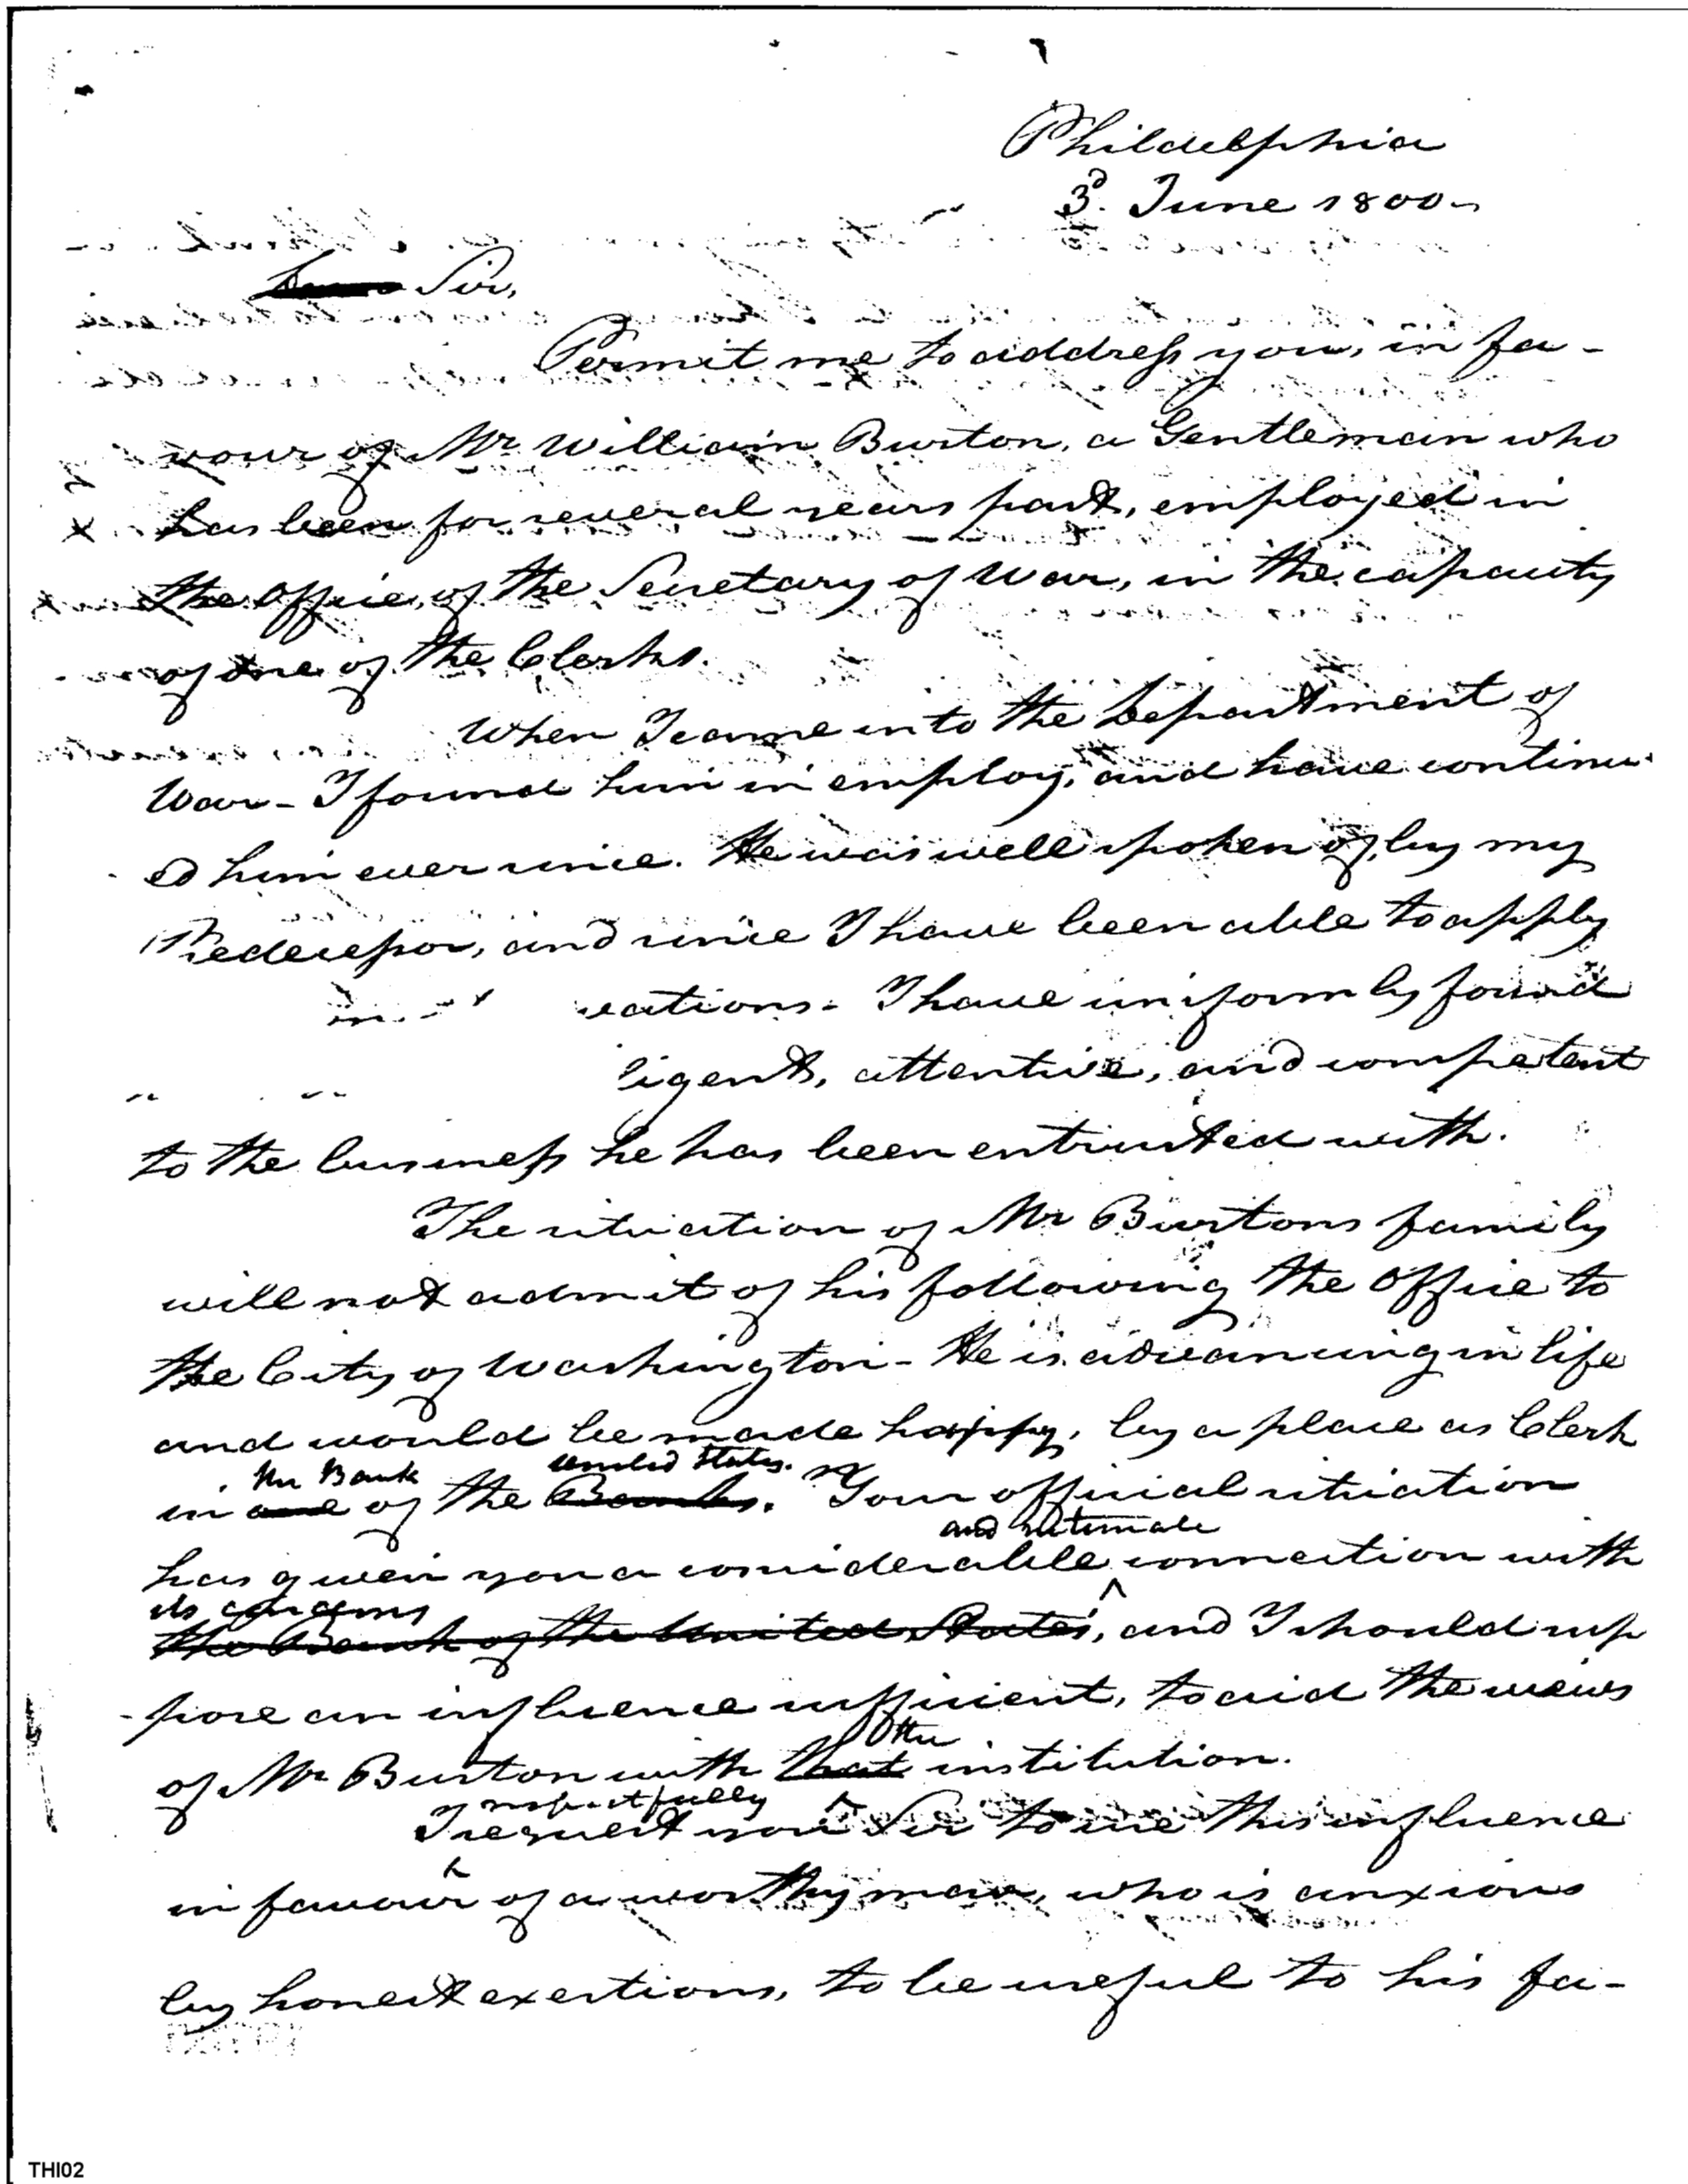 Phildelphia
3d. June 1800
Sir,
Permit me to address you, in fa-
vour of Mr William Burton, a Gentleman who
has been for several years past, employed in
the Office of the Secretary of War, in the capacity
of one of the Clerks.
When I came into the Department of
War - I found him in employ, and have continu-
ed him ever since. He was well spoken of, by my
Predecessor, and since I have been able to apply
I have uniformly found
attentive, and competent
to the business he has been entrusted with.
The situation of Mr Burtons family
will not admit of his following the Office to
the City of Washington - He is advancing in life
and would be made happy, by a place as Clerk
the Bank United States.
in one of the Banks. Your official situation
and intimate
has given you a considerable connection with
its concerns
the Bank of the United States, and I should sup
-pose an influence sufficient, to aid the views
of Mr Burton with that institution.
respectfully
I request you Sir to use this influence
in favour of a worthy man, who is anxious
by honest exertions, to be useful to his fa-
THI02